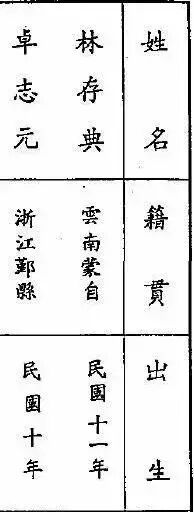 姓名
籍貫
出生
林存典
雲南蒙自
民國十一年
卓志元
浙江鄞縣
民國十年